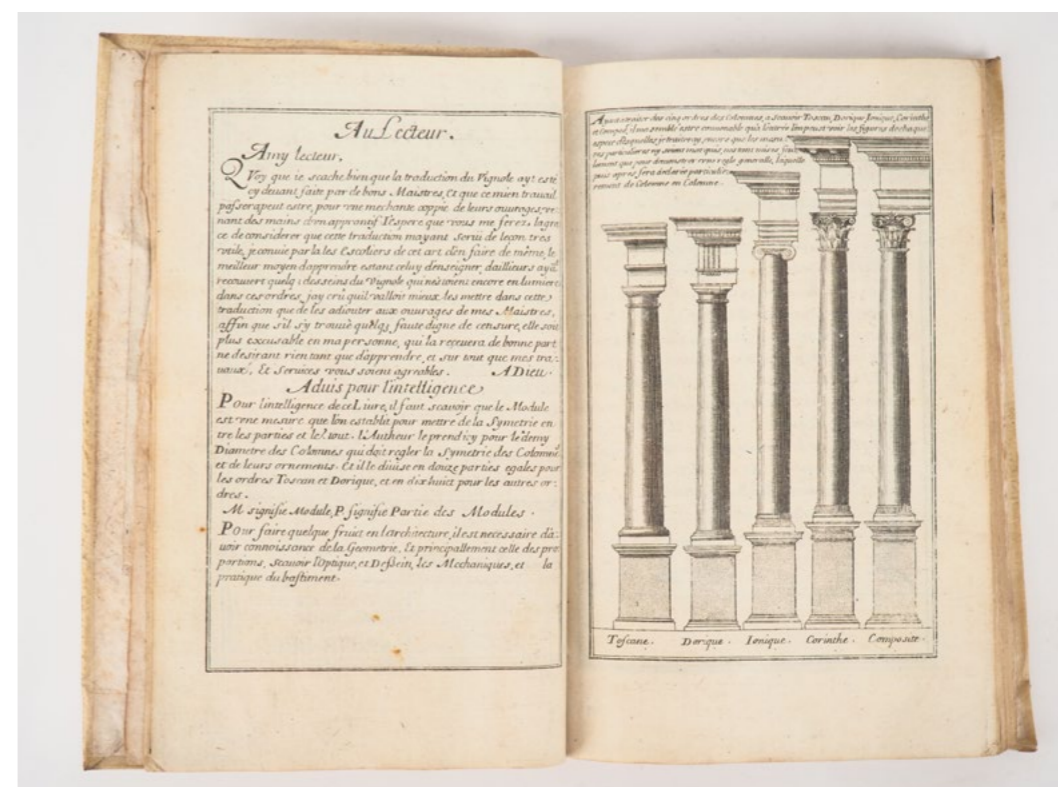 Au Lecteur.
Amy lecteur,
Quoy que ie scache bien que la traduction du Vignole ayt esté
cy devant faite par de bons Maistres, Et que ce mien travail
passera peut estre, pour vne mechante coppie de leurs ouvrages, ve-
nant des mains d'vn apprentif J'espere que vous me ferez la gra
ce de considerer que cette traduction m'ayant servi de leçon tres
vtile, je convie par la les Escoliers de cet art d'en faire de même, le
meilleur moyen d'apprendre estant celuy d'enseigner, dailleurs ayāt
recouvert quelq; desseins du Vignole qui n'estoient encore en lumiere
dans ces ordres, jay crû quil valloit mieux les mettre dans cette
traduction que de les adiouter aux ouvrages de mes Maistres,
affin que s'il s'y trouve quelq; faute digne de censure, elle soit
plus excusable en ma personne, qui la recevera de bonne part
ne desirant rien tant que d'apprendre, et sur tout que mes tra-
vaux, Et Services vous soient agreables. A Dieu.
Aduis pour l'intelligence
POur l'intelligence de ce Livre, il faut scavoir que le Module
est vne mesure que l'on establit pour mettre de la Symetrie en
tre les parties et le tout. L'Autheur le prend icy pour le demy
Diametre des Colomnes qui doit regler la Symetrie des Colomnes
et de leurs ornements. Et il le divise en douze parties egales pour
les ordres Toscan et Dorique, et en dix huict pour les autres or-
dres.
M signifie Module, P signifie Partie des Modules.
POur faire quelque fruict en l'architecture, il est necessaire d'a-
voir connoissance de la Geometrie, Et principallement celle des pro
portions, Scavoir l'Optique, et Dessein, les Mechaniques, et la
pratique du bastiment.
Ayant a traiter des cinq ordres des Colomnes, a Scavoir Toscan, Dorique Ionique, Corinthe
et Composé, il me semble estre convenable qu'a l'entrée l'on peust voir les figures de chaque
espece desquelles je traiteray, encore que les mesures
particulieres n'y soient marquées,
que pour demonstrer vne regle generalle, laquelle
puis apres sera declarée particulie-
rement de Colomne en Colomne.
Toscane. Dorique. Ionique. Corinthe. Composite.